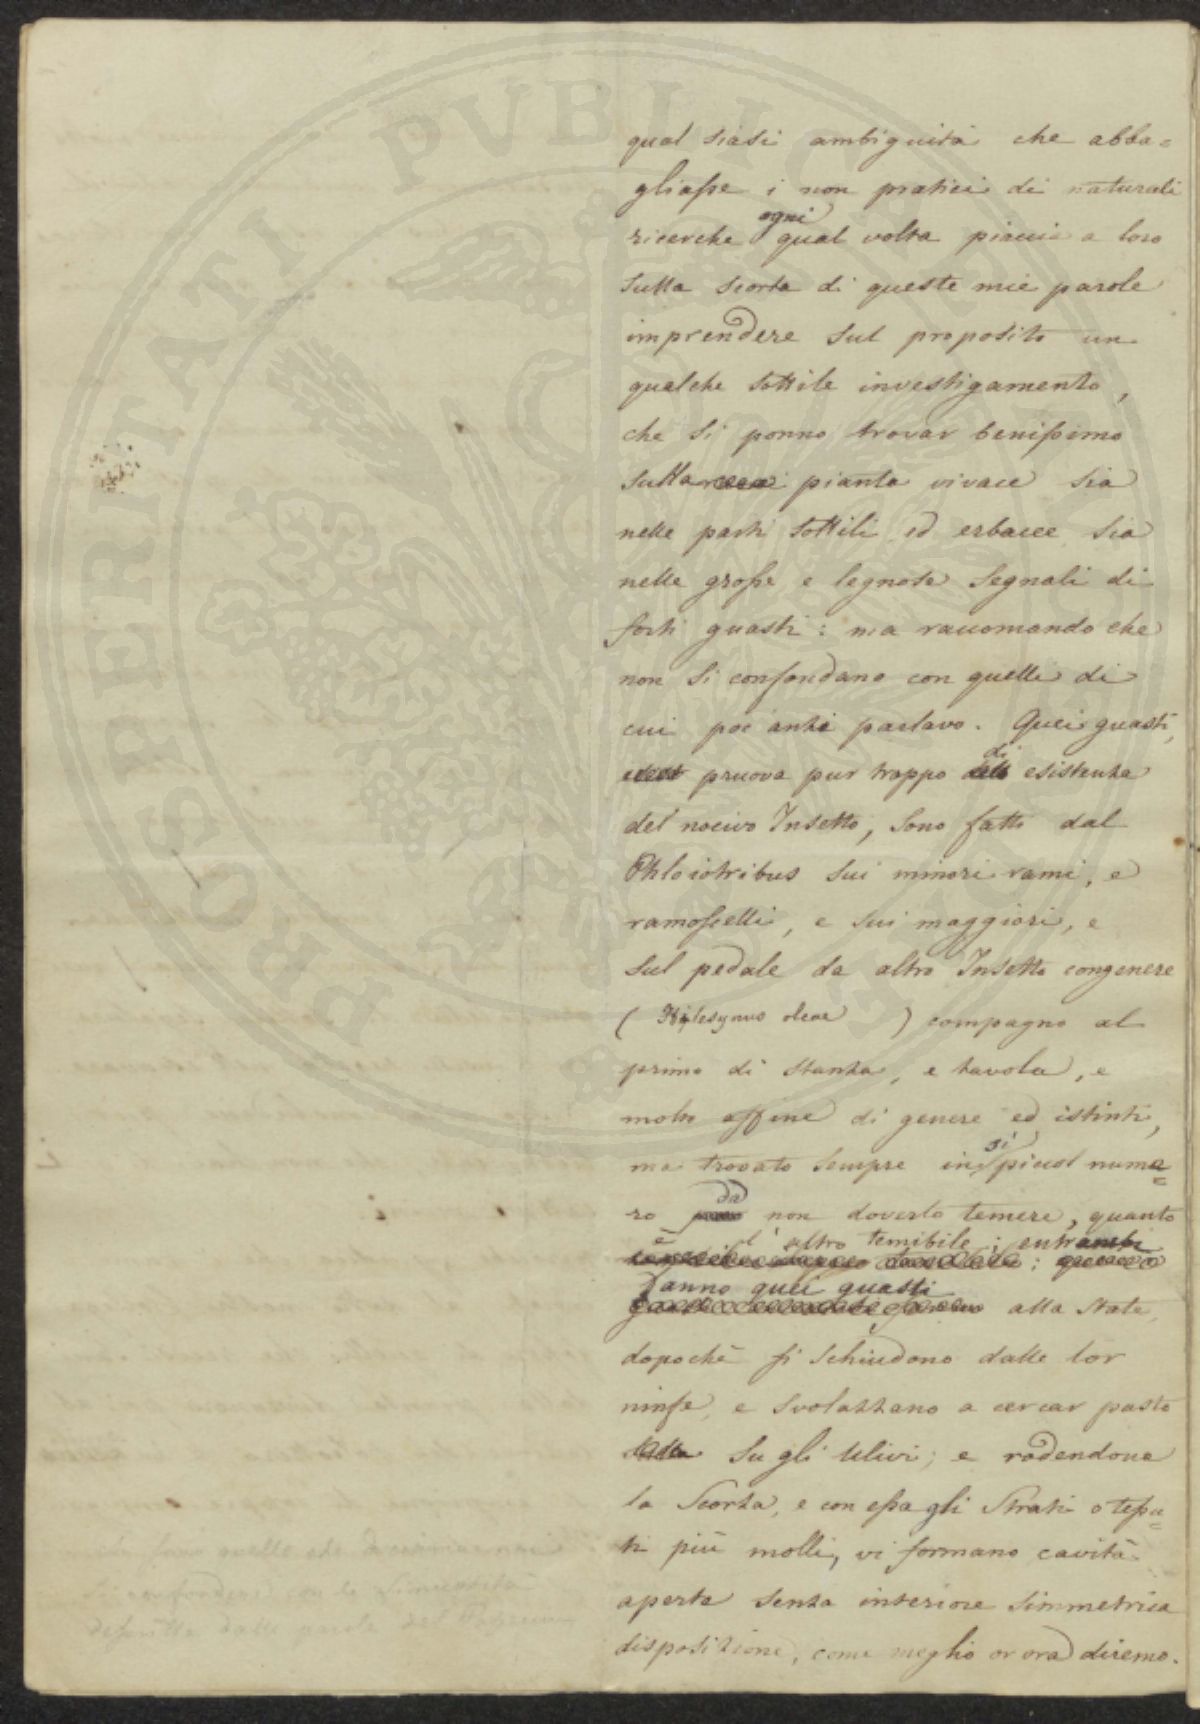 PROSPERITATI PVBLICAE AVGENDAE
qual siasi ambiguità che abba=
gliasse i non pratici di naturali
ricerche ogni qual volta piaccia a loro
sulla scorta di queste mie parole
imprendere sul proposito un
qualche sottile investigamento,
che si ponno trovar benissimo
sulla pianta vivace sia
nelle parti sottili ed erbacee sia
nelle grosse e legnose segnali di
forti guasti: ma raccomando che
non si confondano con quelli di
cui poc'anzi parlavo. Quei guasti,
pruova pur troppo di esistenza
del nocivo Insetto, sono fatti dal
Phloiotribus sui minori rami, e
ramoscelli, e sui maggiori, e
sul pedale da altro Insetto congenere
( Hylesynus oleae ) compagno al
primo di stanza, e tavola, e
molto affine di genere ed istinti,
ma trovato sempre in sì piccol nume=
ro da non doverlo temere, quanto
è l'altro temibile; entrambi
fanno quei guasti alla state,
dopochè si schiudono dalle lor
ninfe, e svolazzano a cercar pasto
su gli Ulivi; e rodendone
la scorza, e con essa gli strati o tessu=
ti più molli, vi formano cavità
aperte senza interiore simmetrica
disposizione, come meglio or ora diremo.